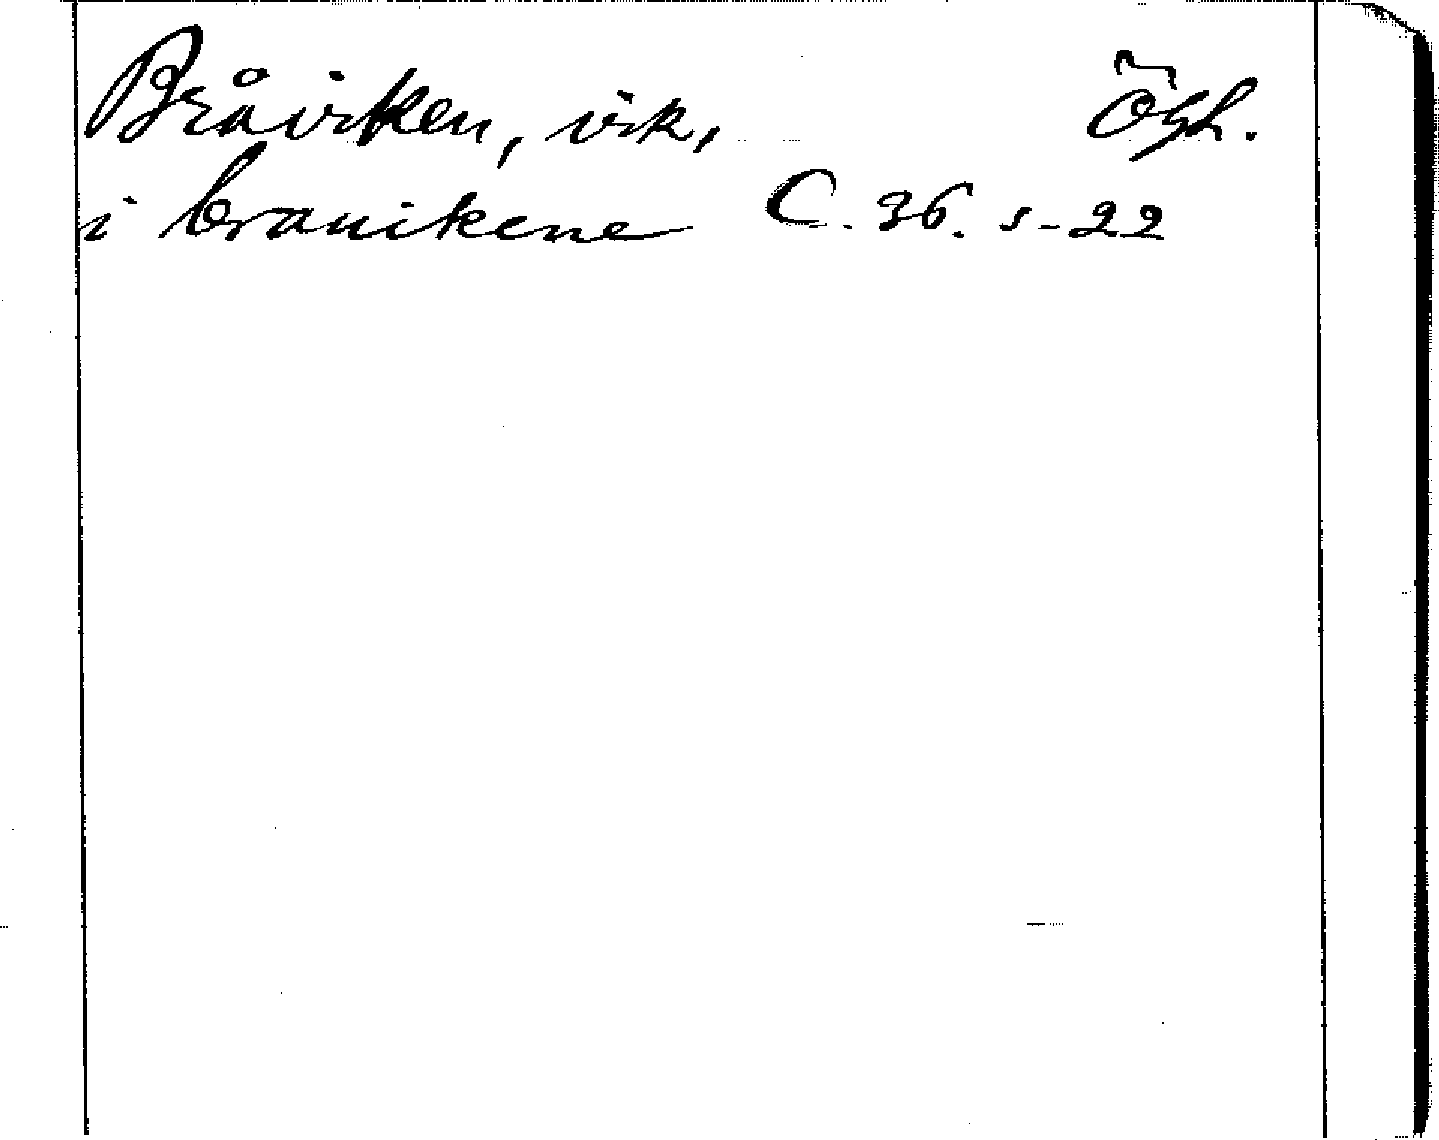 Bråviken, vik, Ögl.
i brauikene C. 36. s-22